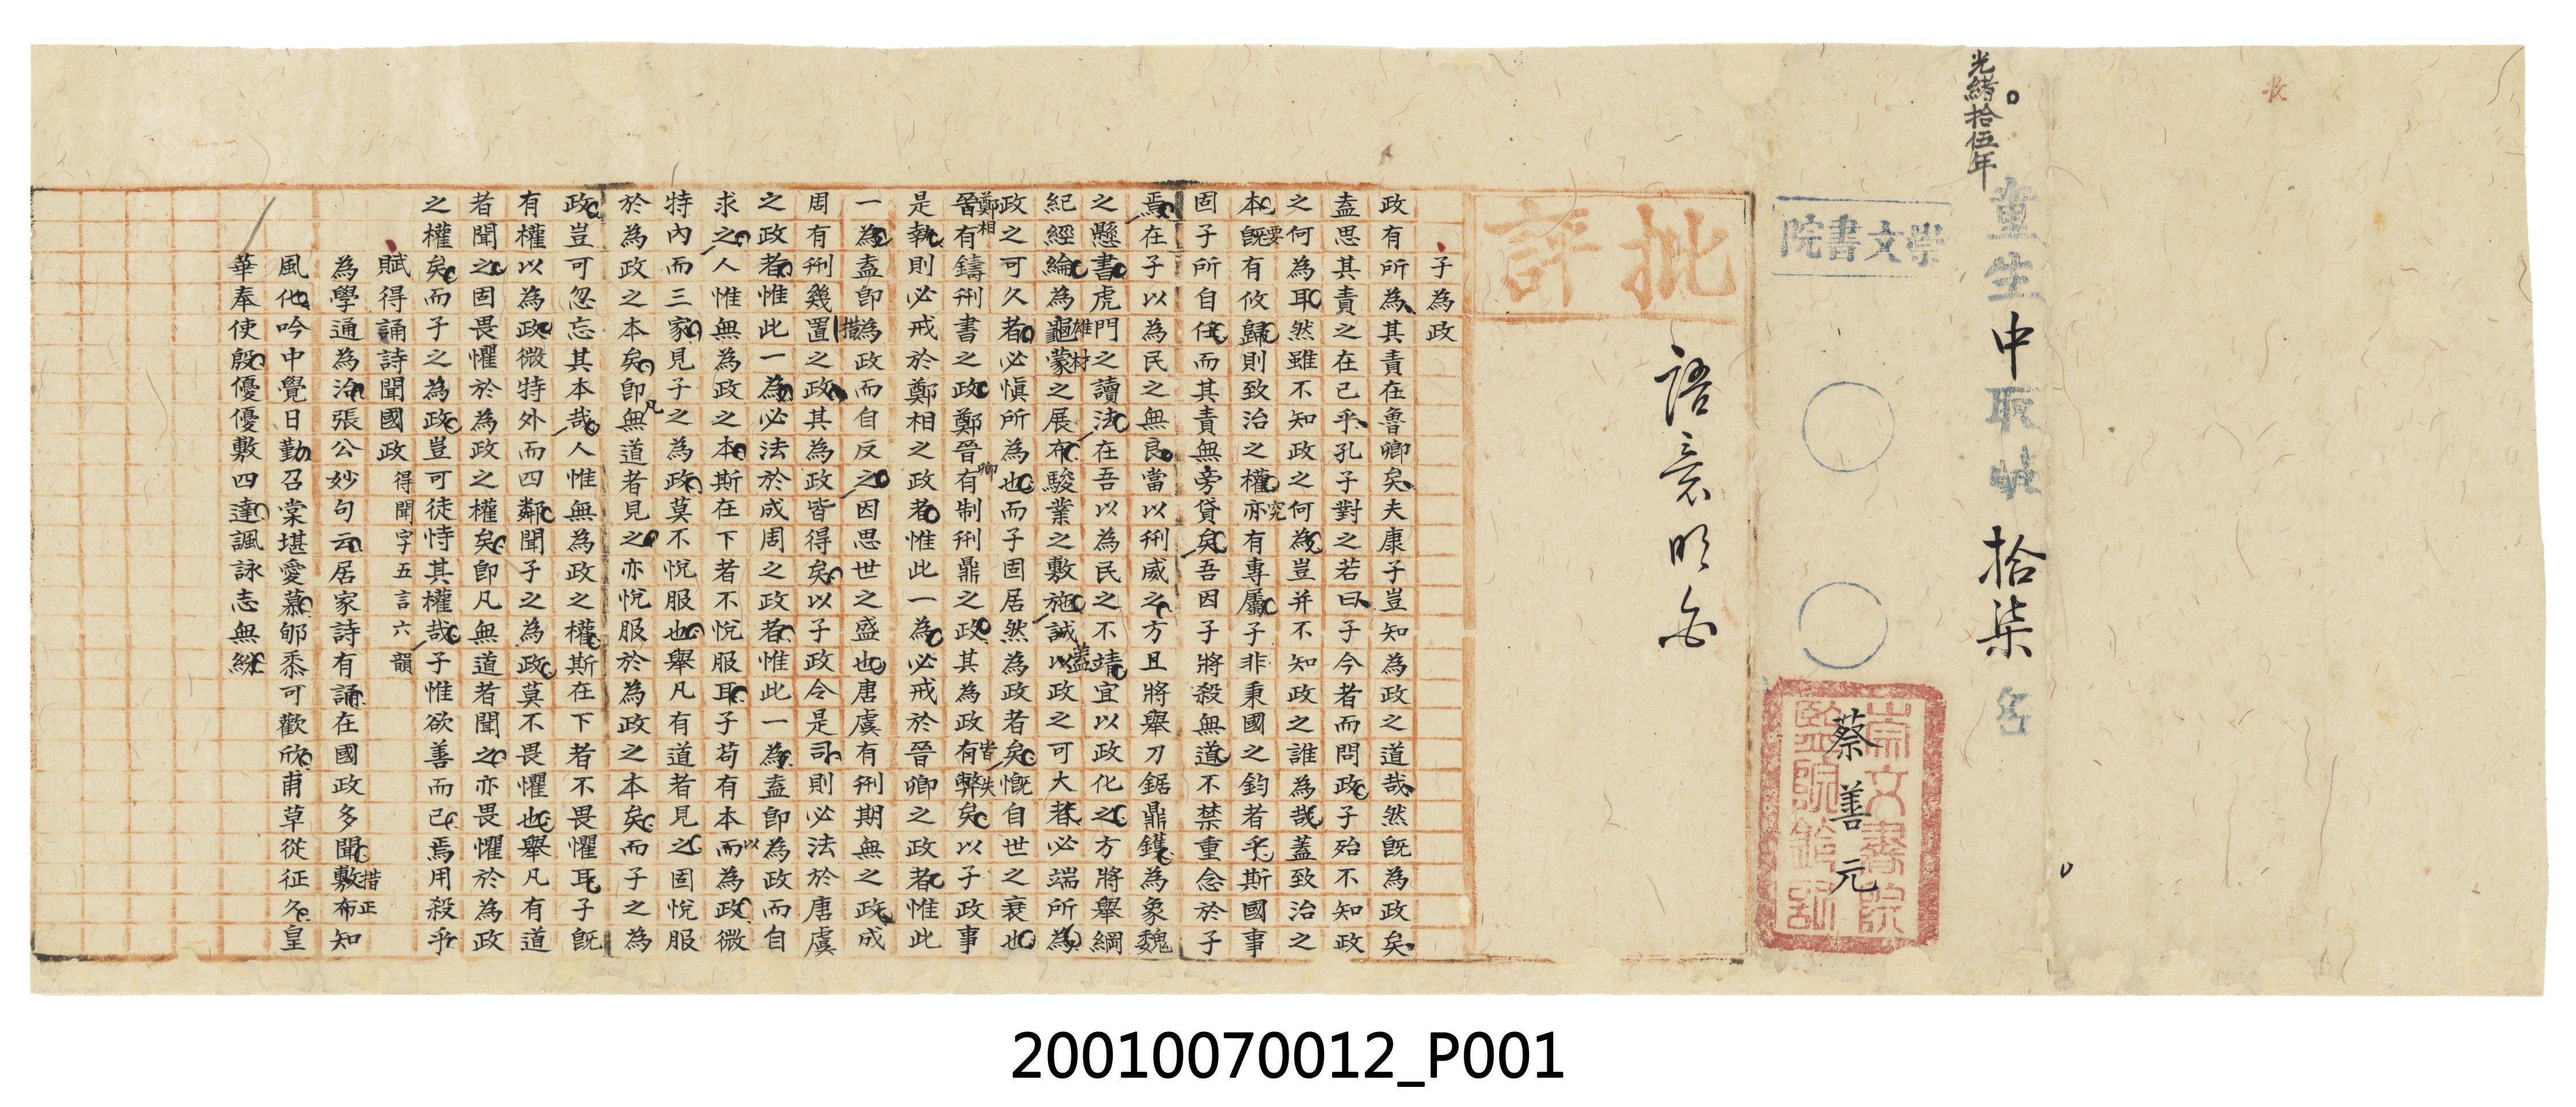 光緒拾伍年
童生中取 拾柒名
崇文書院
蔡善元
崇文書院監院鈐記
批評
語意明白
子為政
政有所為其責在魯卿矣夫康子豈知為政之道哉然既為政矣
盍思其責之在己乎孔子對之若曰子今者而問政子殆不知政
之何為耳然雖不知政之何為豈并不知政之誰為哉蓋致治之
本既有攸歸則致治之權亦有專屬子非秉國之鈞者乎斯國事
要
究
固子所自任而其責無旁貸矣吾因子將殺無道不禁重念於子
焉在子以為民之無良當以刑威之方且將舉刀鋸鼎鑊為象魏
之懸書虎門之讀法在吾以為民之不靖宜以政化之方將舉綱
紀經綸為龜蒙之展布駿業之敷施誠以政之可大者必端所為
雄材
蓋
政之可久者必慎所為也而子固居然為政者矣慨自世之衰也
晉有鑄刑書之政鄭晉有制刑鼎之政其為政有弊矣以子政事
鄭相
卿
皆失
是執則必戒於鄭相之政者惟此一為必戒於晉卿之政者惟此
一為盍即為政而自反之因思世之盛也唐虞有刑期無之政成
周有刑幾置之政其為政皆得矣以子政令是司則必法於唐虞
措
之政者惟此一為必法於成周之政者惟此一為盍即為政而自
求之人惟無為政之本斯在下者不悅服耳子苟有本而為政微
以
特內而三家見子之為政莫不悅服也舉凡有道者見之固悅服
於為政之本矣即無道者見之亦悅服於為政之本矣而子之為
凡
政豈可忽忘其本哉人惟無為政之權斯在下者不畏懼耳子既
有權以為政微特外而四鄰聞子之為政莫不畏懼也舉凡有道
者聞之固畏懼於為政之權矣即凡無道者聞之亦畏懼於為政
之權矣而子之為政豈可徒恃其權哉子惟欲善而已焉用殺乎
賦得誦詩聞國政 得聞字五言六韻
為學通為治張公妙句云居家詩有誦在國政多聞敷布知
措正
風化吟中覺日勤召棠堪愛慕郇黍可歡欣甫草從征久皇
華奉使殷優優敷四達諷詠志無紛
20010070012_P001